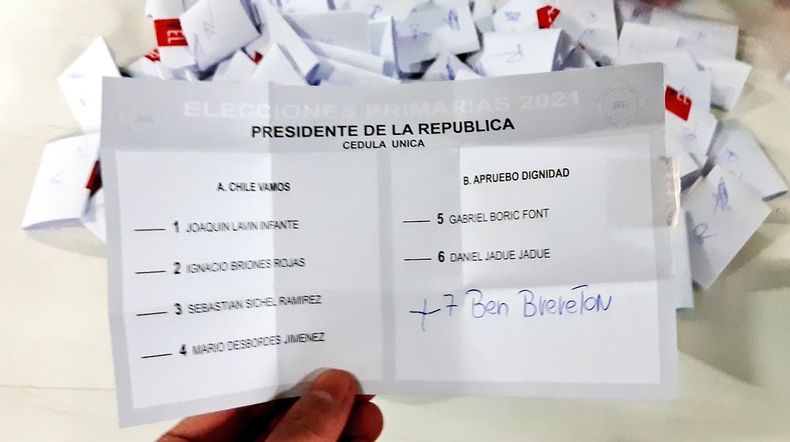 ELECCIONES PRIMARIAS 2021
PRESIDENTE DE LA REPUBLICA
CEDULA UNICA
A. CHILE VAMOS
1 JOAQUIN LAVIN INFANTE
2 IGNACIO BRIONES ROJAS
3 SEBASTIAN SICHEL RAMIREZ
4 MARIO DESBORDES JIMENEZ
B. APRUEBO DIGNIDAD
5 GABRIEL BORIC FONT
6 DANIEL JADUE JADUE
+ 7 Ben Brereton